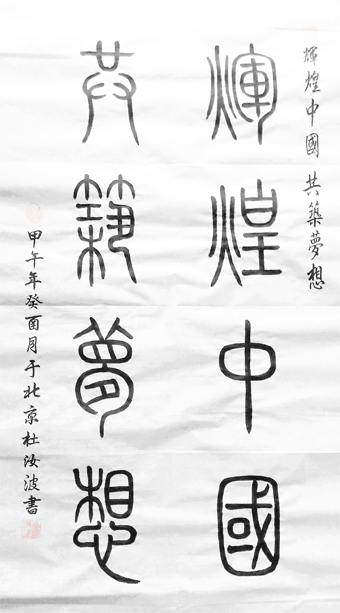 輝煌中國共築夢想
輝煌中國
共築夢想
甲午年癸酉月于北京杜汝波書